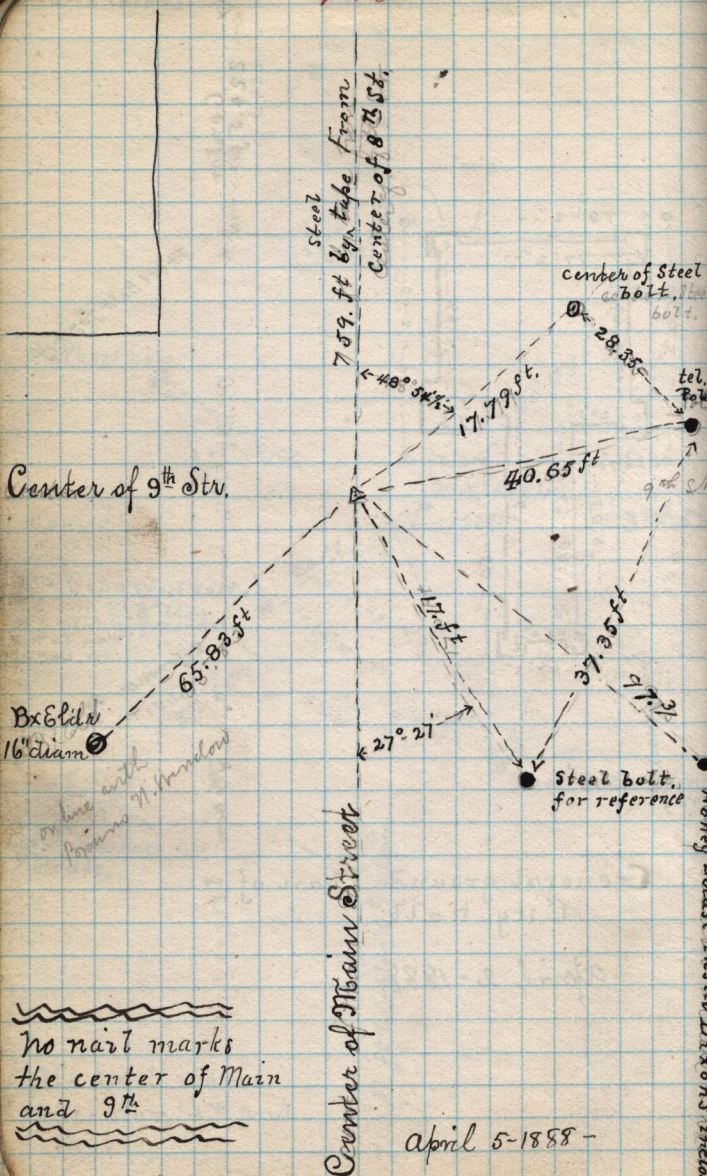 759. ft by steel tape From
Center of 8th St.
center of Steel
bolt.
28.35
tel.
Pole
48° 54½'
17.79 ft.
40.65 ft
Center of 9th Str.
17. ft
37.35 ft
65.83 ft
97.
27°-27'
Bx Eldr
16" diam
on line with
N. Window
Steel bolt.
for reference
Center of Main Street
No nail marks
the center of Main
and 9th
april 5-1888-